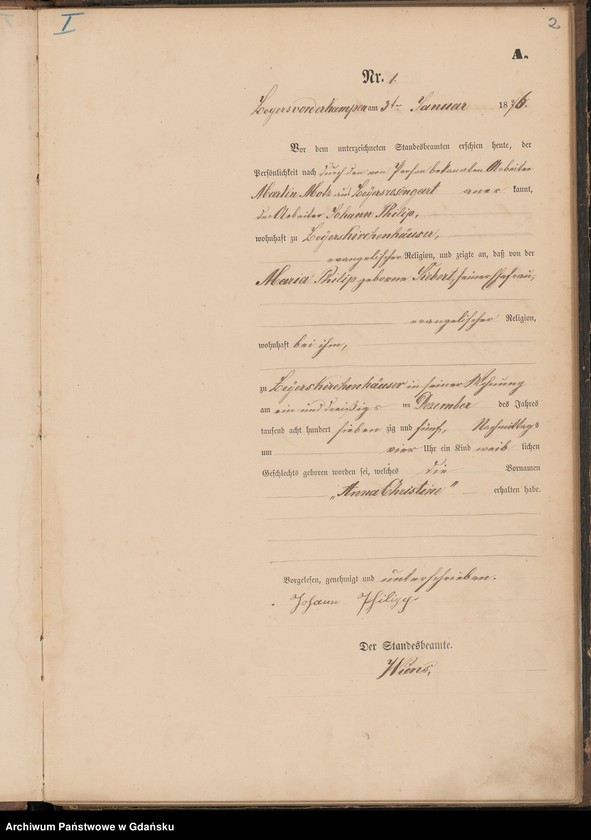 I
2
A.
Nr. 1.
Zeyersvorderkampen am 3t. Januar 1876.
Vor dem unterzeichneten Standesbeamten erschien heute, der
Persönlichkeit nach durch den von Person bekannten Arbeiter
Martin Motz aus Zeyersrosengart aner kannt,
der Arbeiter Johann Philip,
wohnhaft zu Zeyerskirchenhäuser,
evangelischer Religion, und zeigte an, daß von der
Maria Philip geborne Siebert, seiner Ehefrau,
evangelischer Religion,
wohnhaft bei ihm,
zu Zeyerskirchenhäuser in seiner Wohnung
am ein und dreißig im Dezember des Jahres
tausend acht hundert sieben zig und fünf, Nachmittags
um vier Uhr ein Kind weib lichen
Geschlechts geboren worden sei, welches die Vornamen
„Anna Christine" erhalten habe.
Vorgelesen, genehmigt und unterschrieben.
Johann Philipp
Der Standesbeamte.
Wiens,
Archiwum Państwowe w Gdańsku